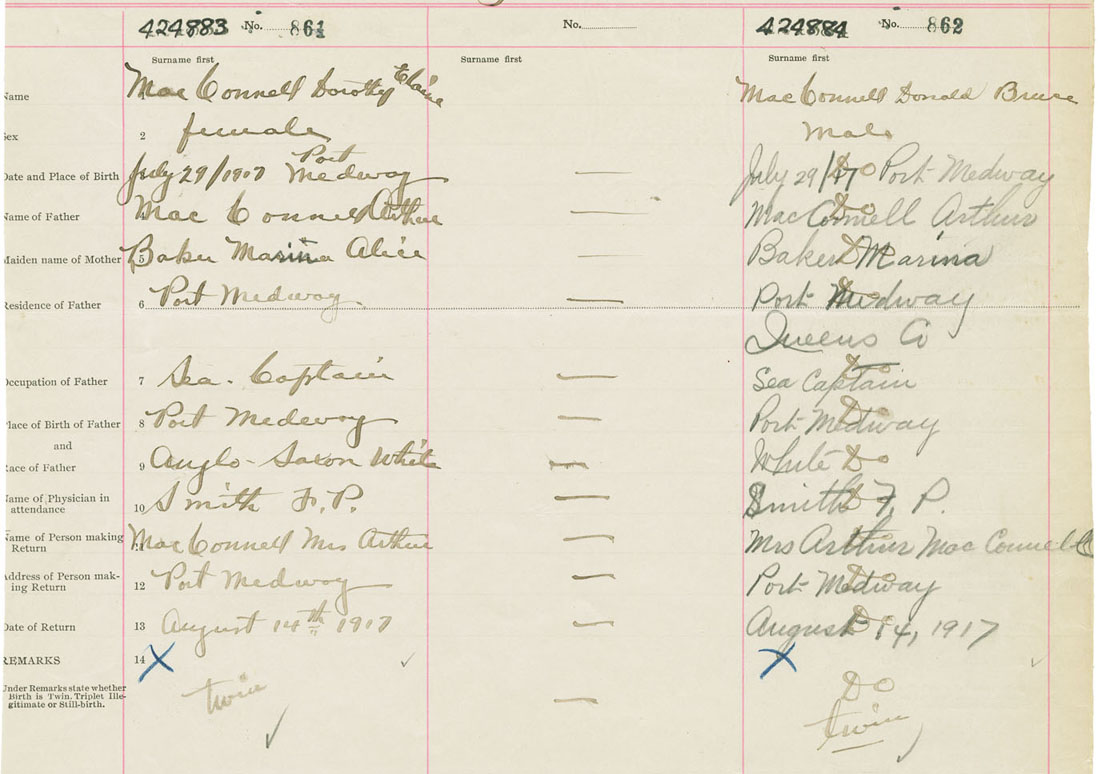 424883 No. 861
No.
424884 No. 862
Surname first
Surname first
Surname first
Name
Mac Connell Dorothy Elaine
Mac Connell Donald Bruce
Sex
2 female
Male
Date and Place of Birth
July 29/1917 Port Medway
July 29/17 Do Port Medway
Name of Father
Mac Connell Arthur
Do MacConnell Arthur
Maiden name of Mother
5 Baker Marina Alice
Baker Do Marina
Residence of Father
6 Port Medway
Port Do Medway
Queens Co
Occupation of Father
7 Sea. Captain
Do Sea Captain
Place of Birth of Father
8 Port Medway
Port Do Medway
and
Race of Father
9 Anglo-Saxon White
White Do
Name of Physician in
attendance
10 Smith F. P.
Smith Do F. P.
Name of Person making
Return
11 Mac Connell Mrs Arthur
Mrs Arthur Mac Connell
Address of Person mak-
ing Return
12 Port Medway
Port Do Medway
Date of Return
13 August 14th 1917
August Do 14, 1917
REMARKS
14 X
X
Under Remarks state whether
Birth is Twin. Triplet Ille-
gitimate or Still-birth.
twin
Do
twin